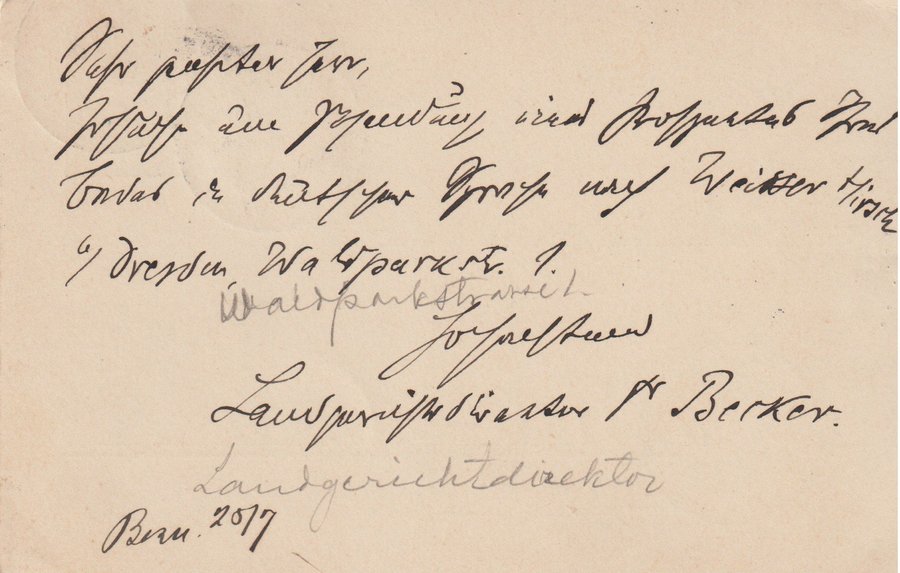 Sehr geehrter Herr,
Ersuche um Zusendung eines Prospectes Ihres
Bades in deutscher Sprache nach Weisser Hirsch
b/ Dresden, Waldparkstr. 1.
Waldparkstrasse 1.
Hochachtend
Landgerichtsdirektor Dr Becker.
Landgerichtdirektor
Bonn. 20/7